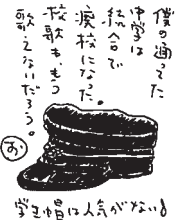 僕の通ってた
中学は
統合で
廃校になった。
校歌も、もう
歌えないだろう。
お
学生帽は人気がない！